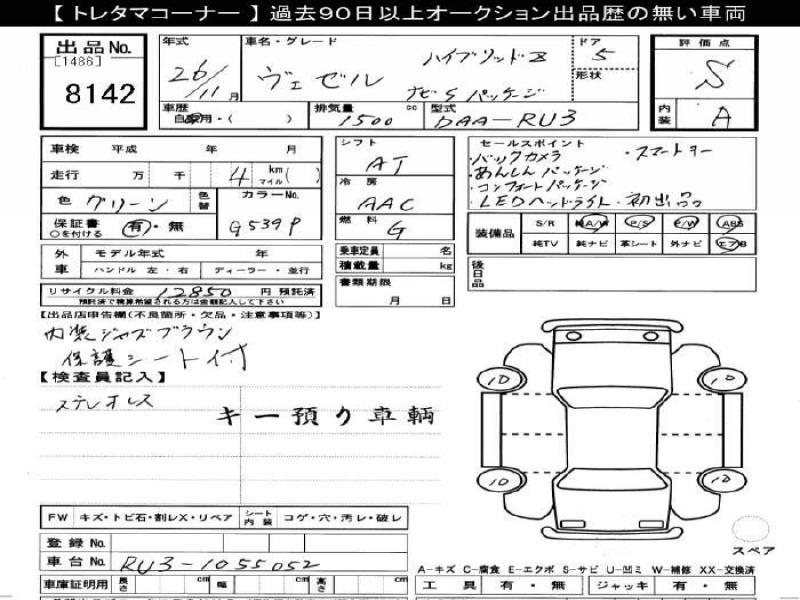 【 トレタマコーナー 】 過去90日以上オークション出品歴の無い車両
出品No. [1486] 8142
年式 26/11月
車名・グレード ヴェゼル ハイブリッドZ ナビSパッケージ
ドア 5
形状
評価点 S
内装 A
車歴 自家用・( )
排気量 1500 cc
型式 DAA-RU3
車検 平成 年 月
走行 万 千 4 km マイル( )
色 グリーン 色替 カラーNo. G539P
保証書 ○を付ける 有・無
シフト AT
冷房 AAC
燃料 G
セールスポイント
・バックカメラ ・スマートキー
・あんしんパッケージ
・コンフォートパッケージ
・LEDヘッドライト・初出品
装備品 S/R 純A/W P/S P/W ABS
純TV 純ナビ 革シート 外ナビ エアB
外車 モデル年式 年
ハンドル 左・右 ディーラー・並行
乗車定員 名
積載量 kg
後日品
リサイクル料金 12850 円 預託済
預託済で検算希望される方は金額記入して下さい
書類期限 月 日
【出品店申告欄(不良箇所・欠品・注意事項等)】
内装ジャズブラウン
保護シート付
【検査員記入】
ステレオレス
キー預り車輌
10 10
10 10
スペア
FW キズ・トビ石・割レX・リペア シート内装 コゲ・穴・汚レ・破レ
登録No.
車台No. RU3-1055052
A-キズ C-腐食 E-エクボ S-サビ U-凹ミ W-補修 XX-交換済
車庫証明用 長さ cm 幅 cm 高さ cm
工具 有・無 ジャッキ 有・無